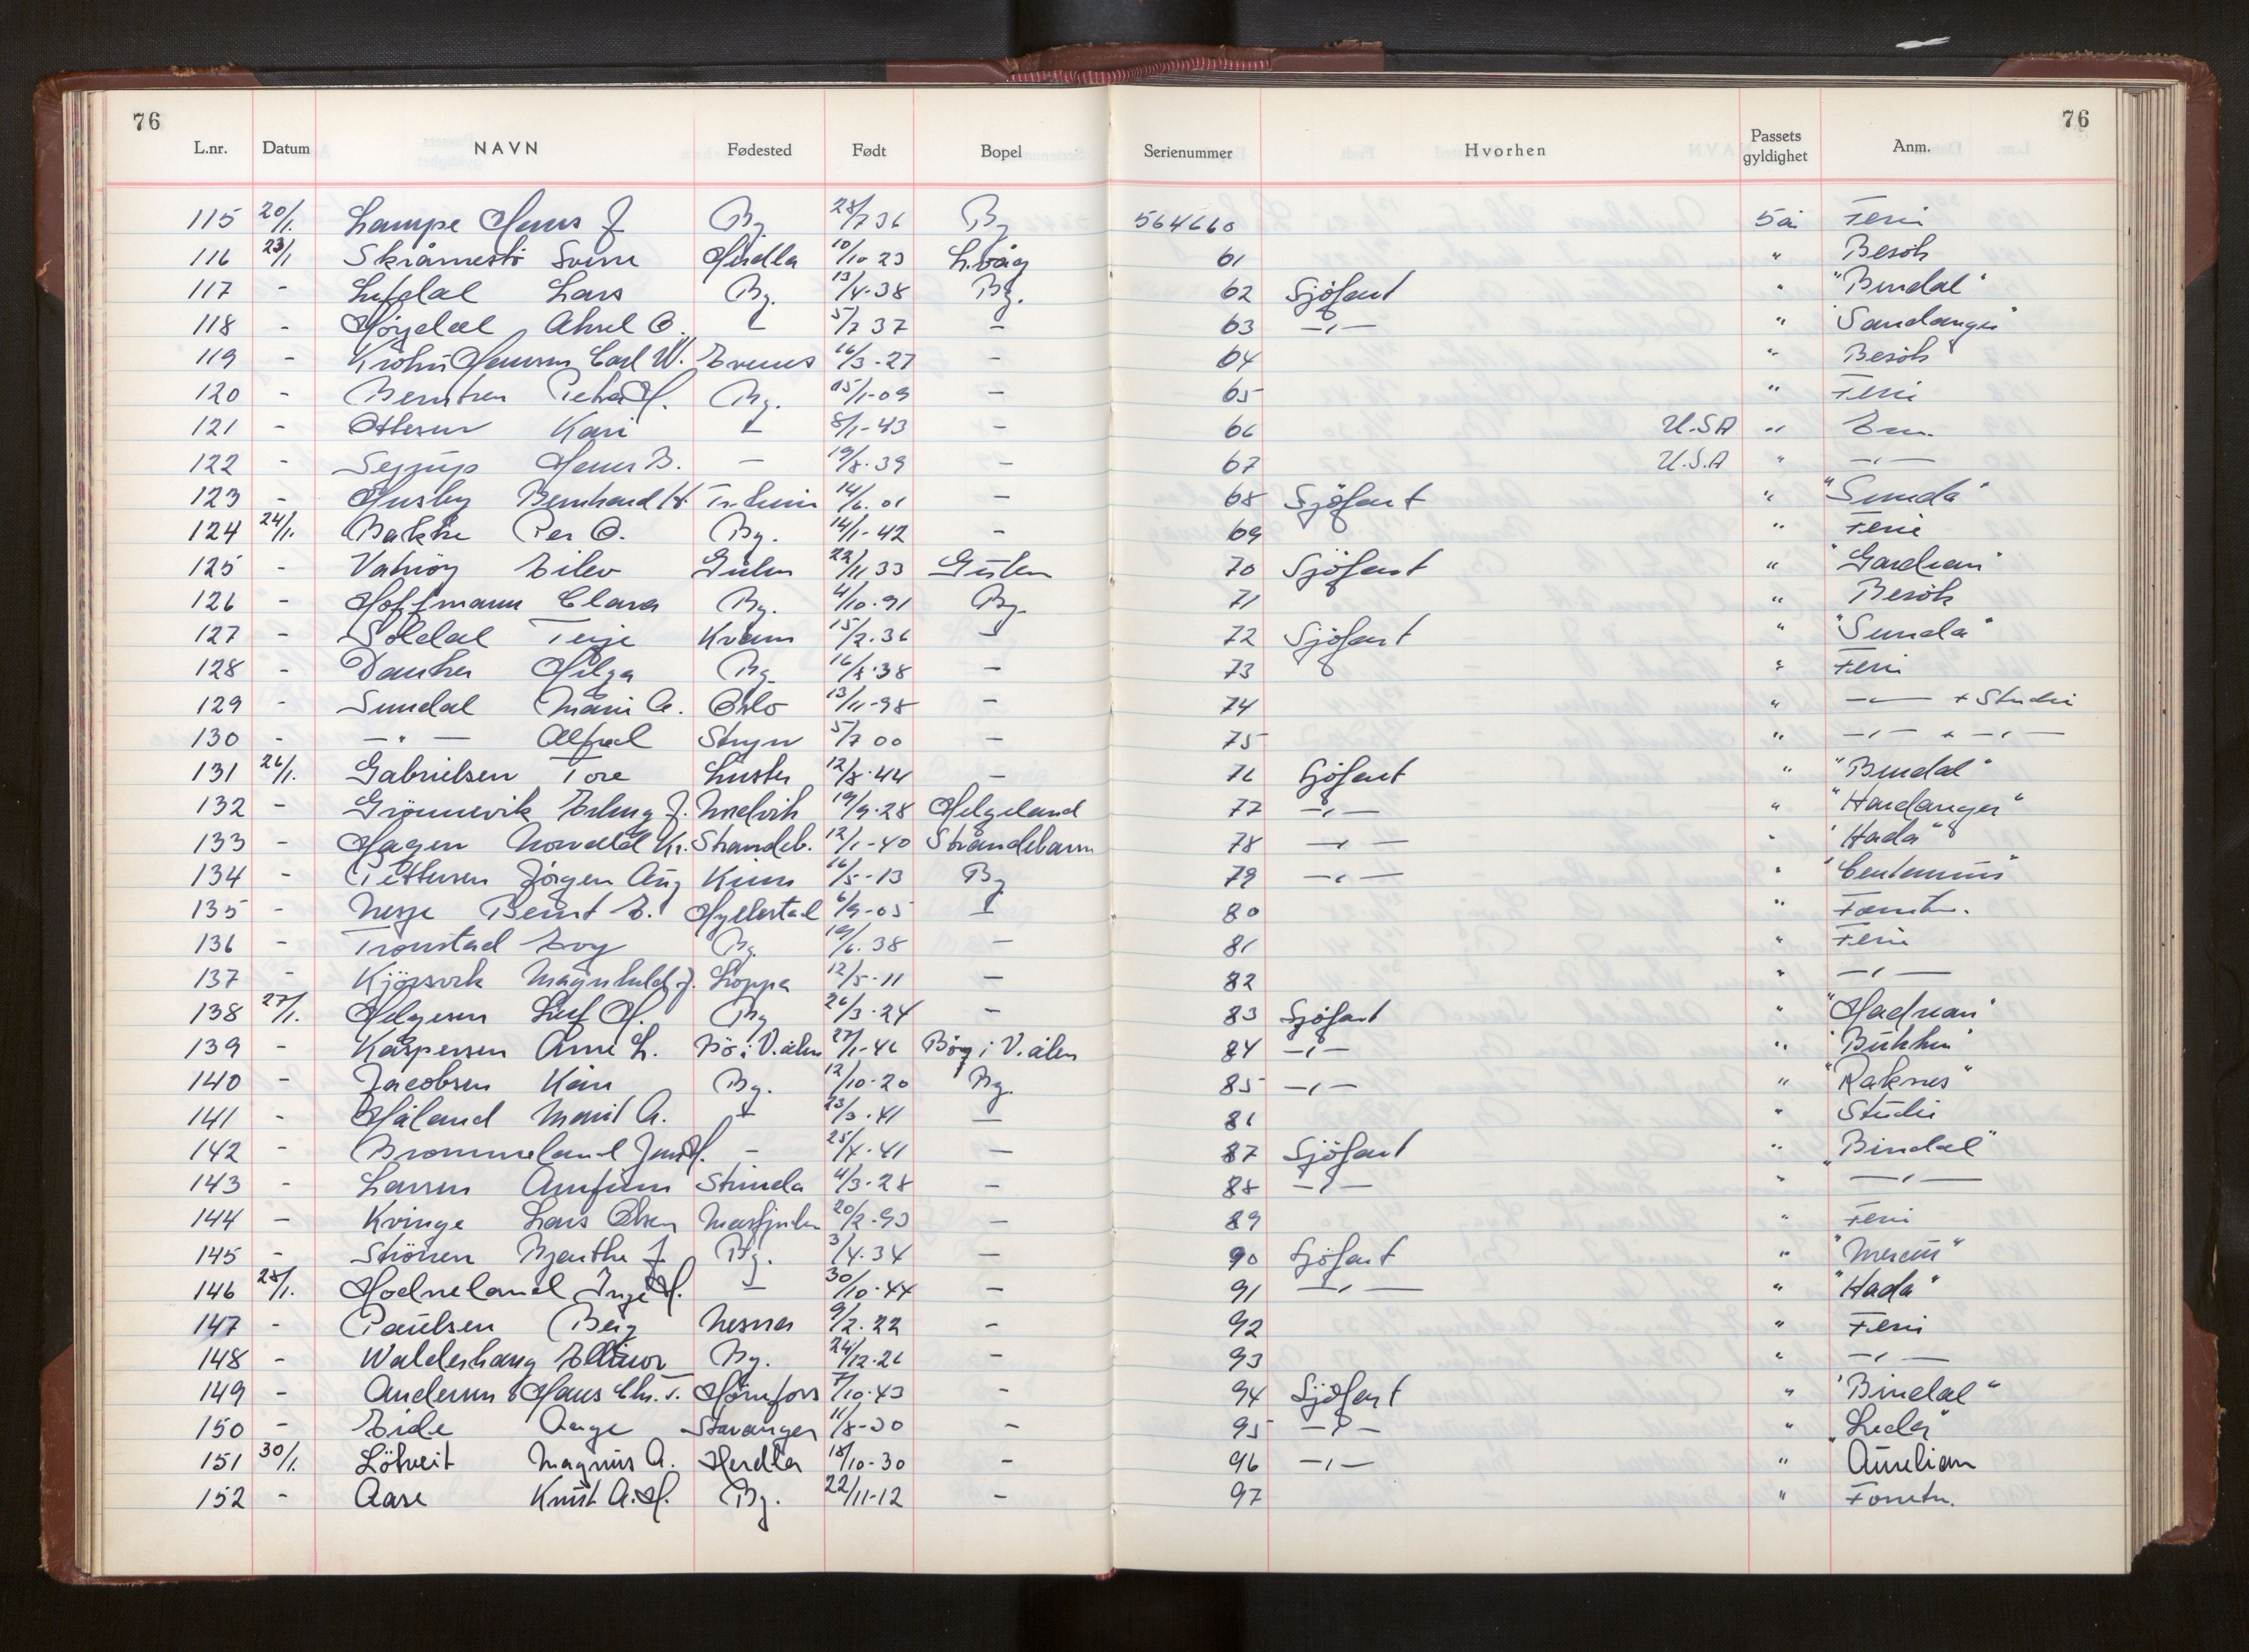 76 76
L.nr. Datum NAVN Fødested Født Bopel Serienummer Hvorhen Passets gyldighet Anm.
115 20/1. Lampe Hans J. Bg. 28/7 36 Bg 564660 5 år Ferie
116 23/1 Skråmestø Sverre Herdla 10/10 23 L.våg 61 " Besök
117 - Lufdal Lars Bg. 13/4-38 Bg. 62 Sjöfart " "Bindal"
118 - Høydal Aksel O. - 5/7 37 - 63 -,- " "Sandanger"
119 - Krohn Hansen Carl W. Evenes 16/3-27 - 64 " Besök
120 - Berntsen Peter H. Bg. 15/1-09 - 65 " Ferie
121 - Ottesen Kari - 8/1-43 - 66 U.S.A " Em.
122 - Sejrup Hans B. - 19/8-39 - 67 U.S.A " -,-
123 - Husby Bernhard K. Tr.heim 14/6.01 - 68 Sjöfart " "Sunda"
124 24/1. Bakke Per O. Bg. 14/1-42 - 69 " Ferie
125 - Vatnöy Eilev Gulen 22/11 33 Gulen 70 Sjöfart " "Gardrian"
126 - Hoffmann Clara Bg. 4/10-91 Bg. 71 " Besök
127 - Söldal Terje Kvam 15/2.36 - 72 Sjöfart " "Sunda"
128 - Danker Helga Bg. 16/8.38 - 73 " Ferie
129 - Sundal Marie A. Oslo 13/11-98 - 74 " -,- + Studie
130 - - " - Alfred Stryn 5/7 00 - 75 " -,- + -,-
131 26/1. Gabrielsen Tore Luster 12/8.44 - 76 Sjöfart " "Bindal"
132 - Grönnevik Erling J. Nordvik 19/9.28 Helgeland 77 -,- " "Hardanger"
133 - Hagen Norvald Kr. Strandeb. 12/1-40 Strandebarm 78 -,- " "Hada"
134 - Pettersen Jörgen Aug Kinn 16/5-13 Bg 79 -,- " "Centennius"
135 - Nesje Bernt E. Hyllestad 6/9-05 - 80 " Forretn.
136 - Tronstad Evy Bg. 19/6.38 - 81 " Ferie
137 - Kjörsvik Magnhild J. Loppa 12/5-11 - 82 " -,-
138 27/1. Helgesen Leif H. Bg 26/3-24 - 83 Sjöfart " "Hadrian"
139 - Kaspersen Arne L. Bö i V.ålen 27/1-46 Bö i V.ålen 84 -,- "
140 - Jacobsen Kåre Bg. 12/10-20 Bg. 85 -,- " "Raknes"
141 - Håland Marit A. - 23/3.41 - 86 " Studie
142 - Brommeland Jan H. - 25/4.41 - 87 Sjöfart " "Bindal"
143 - Larsen Arnfinn Strinda 4/3-28 - 88 -,- " -,-
144 - Kvinge Lars Olsen Masfjorden 20/2-93 - 89 " Ferie
145 - Strönen Bjarthe J. Bg. 3/4.34 - 90 Sjöfart " "Mercur"
146 28/1. Hodneland Inge H. - 30/10.44 - 91 -,- " "Hada"
147 - Paulsen Berg Nesna 9/2.22 - 92 " Ferie
148 - Walderhaug Ellinor Bg. 24/12.26 - 93 " -,-
149 - Andersen Hans Chr. T. Hörnfors 7/10.43 - 94 Sjöfart " "Bindal"
150 - Eide Aage Stavanger 11/8-30 - 95 -,- " "Leda"
151 30/1. Lötveit Magnus A. Herdla 18/10-30 - 96 -,- " "Aurelian
152 - Aase Knut A.H. Bg. 22/11-12 - 97 " Forretn.